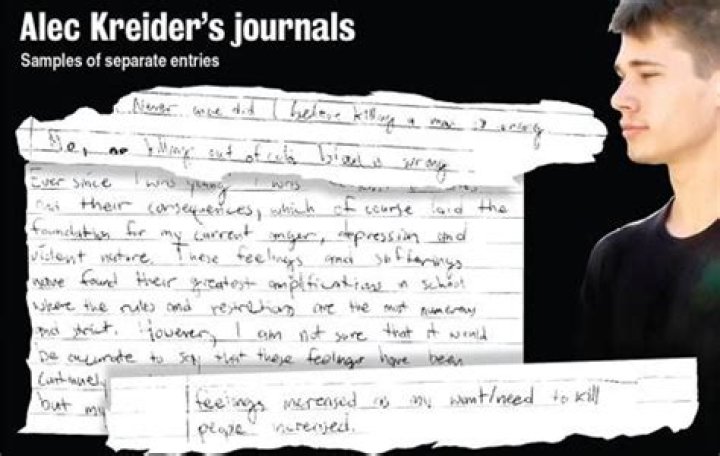 Alec Kreider's journals
Samples of separate entries
Never once did I believe killing a man is wrong
killing out of cold blood is wrong
Ever since I was young I was
their consequences, which of course laid the
foundation for my current anger, depression and
violent nature. These feelings and sufferings
have found their greatest amplifications in school
where the rules and restrictions are the most numerous
and strict. However, I am not sure that it would
be accurate to say that these feelings have been
but my
feelings increased as my want/need to kill
people increased.